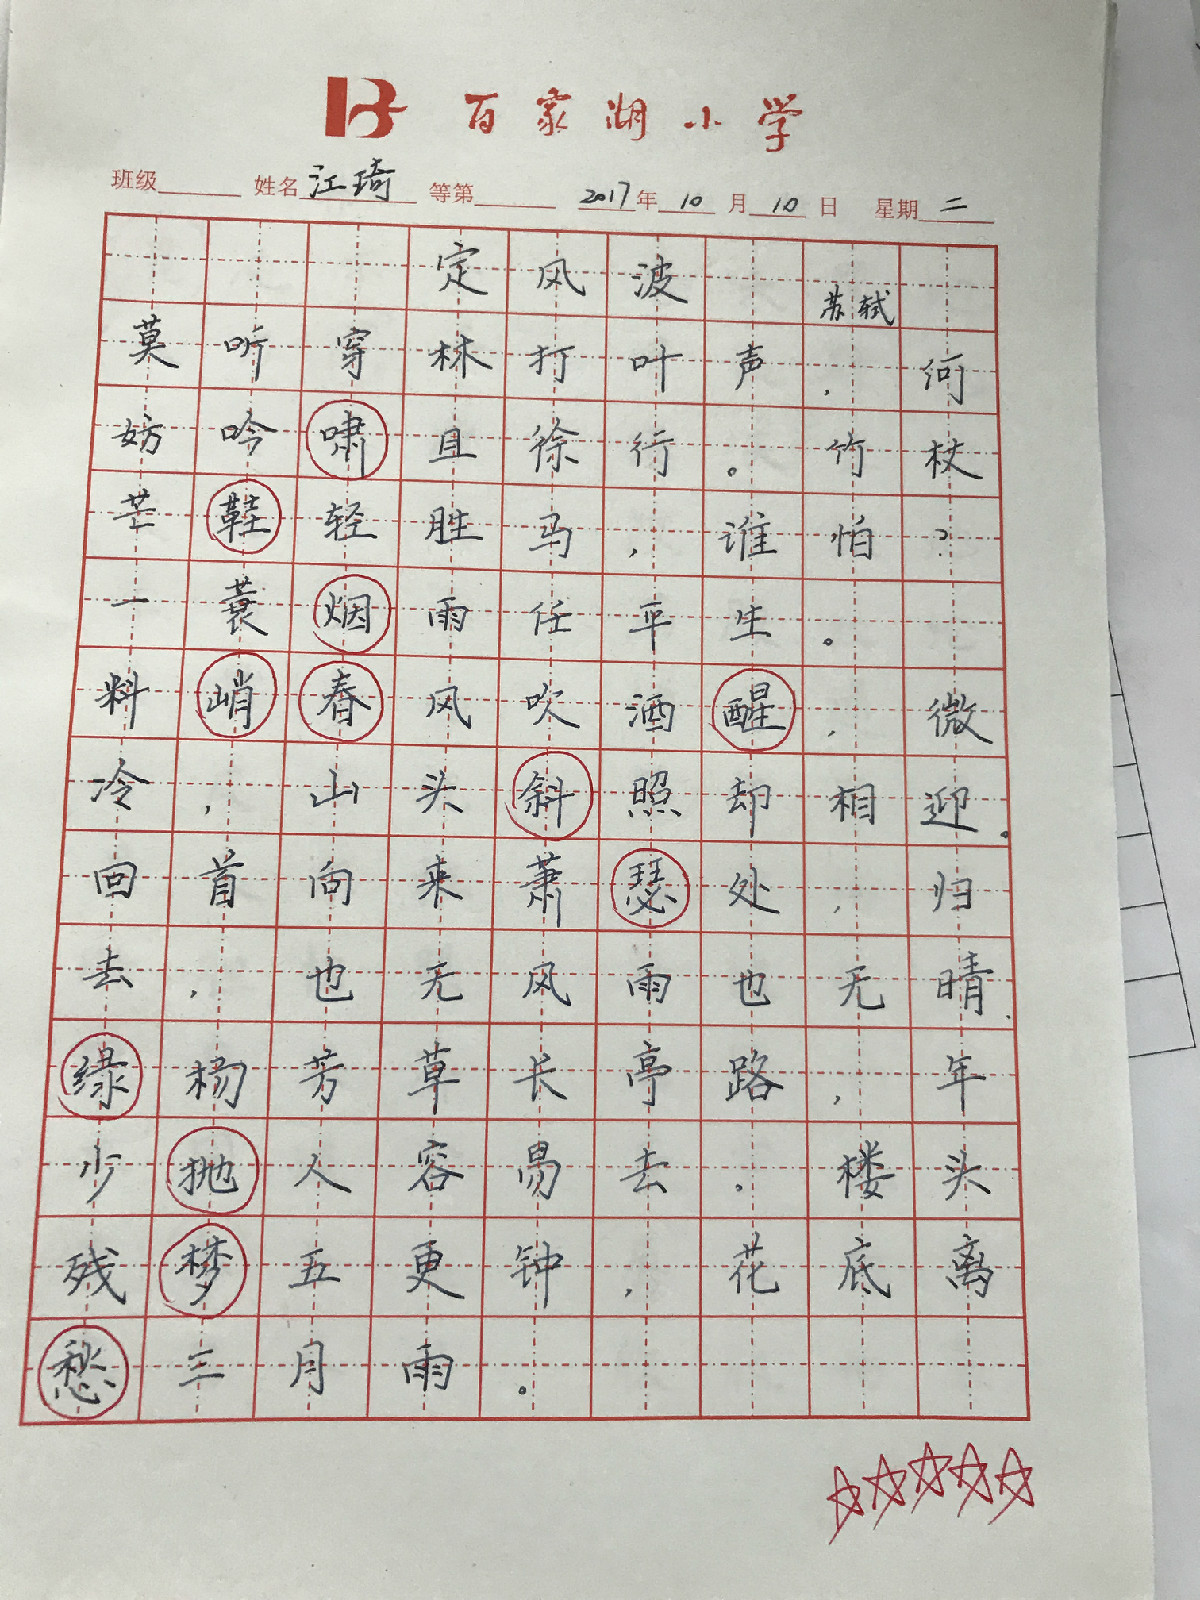 百家湖小学
班级 姓名 江琦 等第 2017年 10月 10日 星期 二
定风波 苏轼
莫听穿林打叶声，何
妨吟啸且徐行。竹杖
芒鞋轻胜马，谁怕？
一蓑烟雨任平生。
料峭春风吹酒醒，微
冷，山头斜照却相迎。
回首向来萧瑟处，归
去，也无风雨也无晴.
绿杨芳草长亭路，年
少抛人容易去。楼头
残梦五更钟，花底离
愁三月雨。